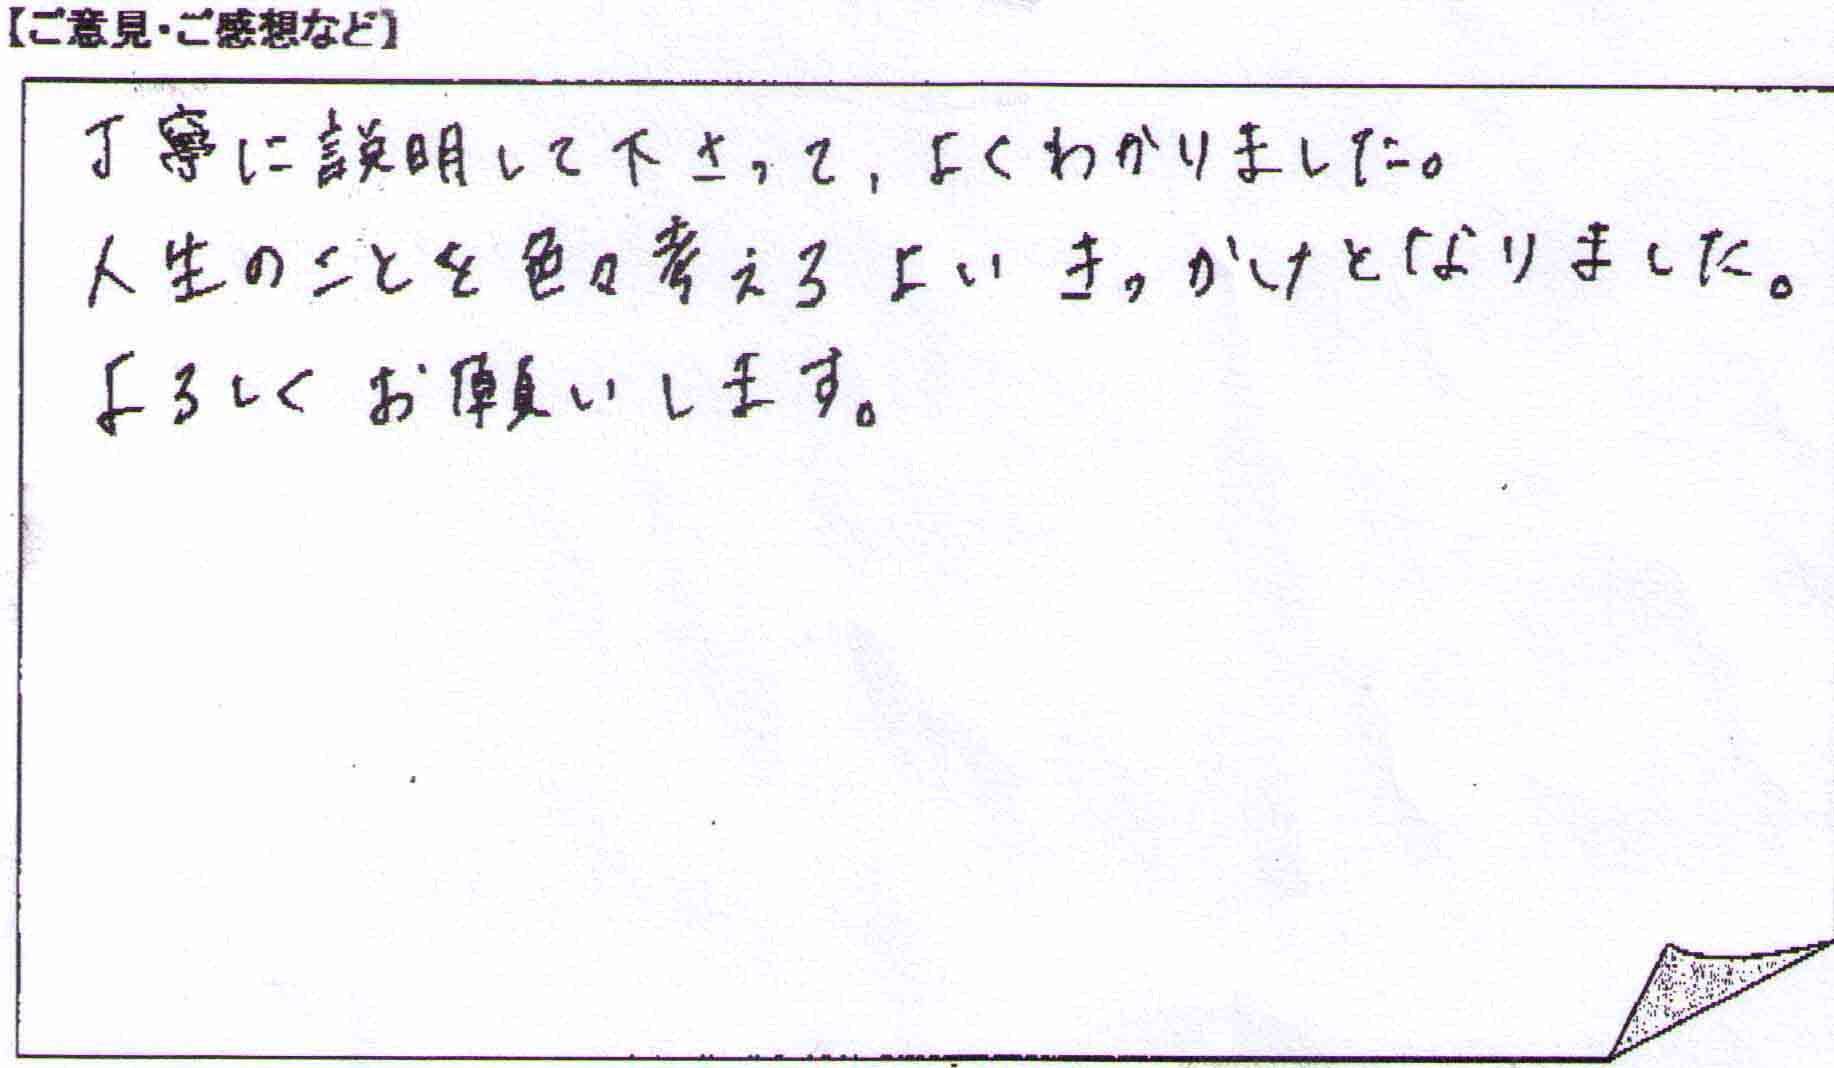 【ご意見・ご感想など】
丁寧に説明して下さって、よくわかりました。
人生のことを色々考えるよいきっかけとなりました。
よろしくお願いします。